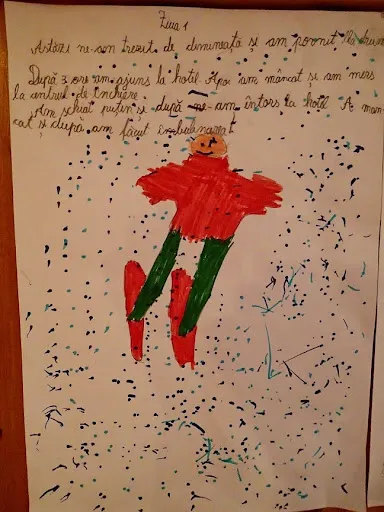 Ziua 1
Astăzi ne-am trezit de dimineață și am pornit la drum
După 3 ore am ajuns la hotel. Apoi am mâncat și am mers
la centrul de închiere.
Am schiat puțin și după ne-am întors la hotel. A mân
cat și după am făcut